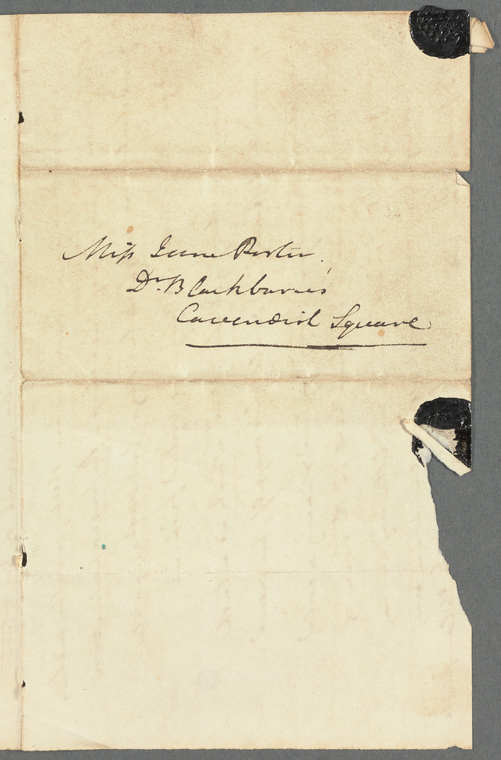 Miss Jane Porter.
Dr. Blackburne's
Cavendish Square